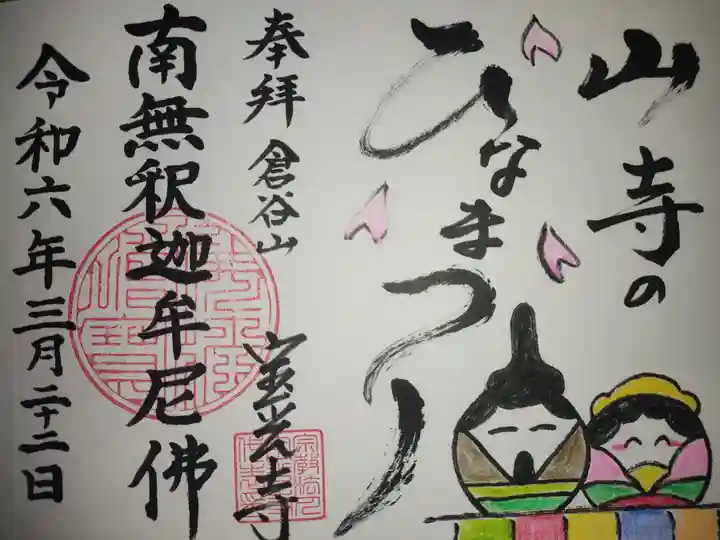 山寺の
ひなまつり
奉拝 倉谷山
光寺
南無釈迦牟尼佛
令和六年三月二十二日